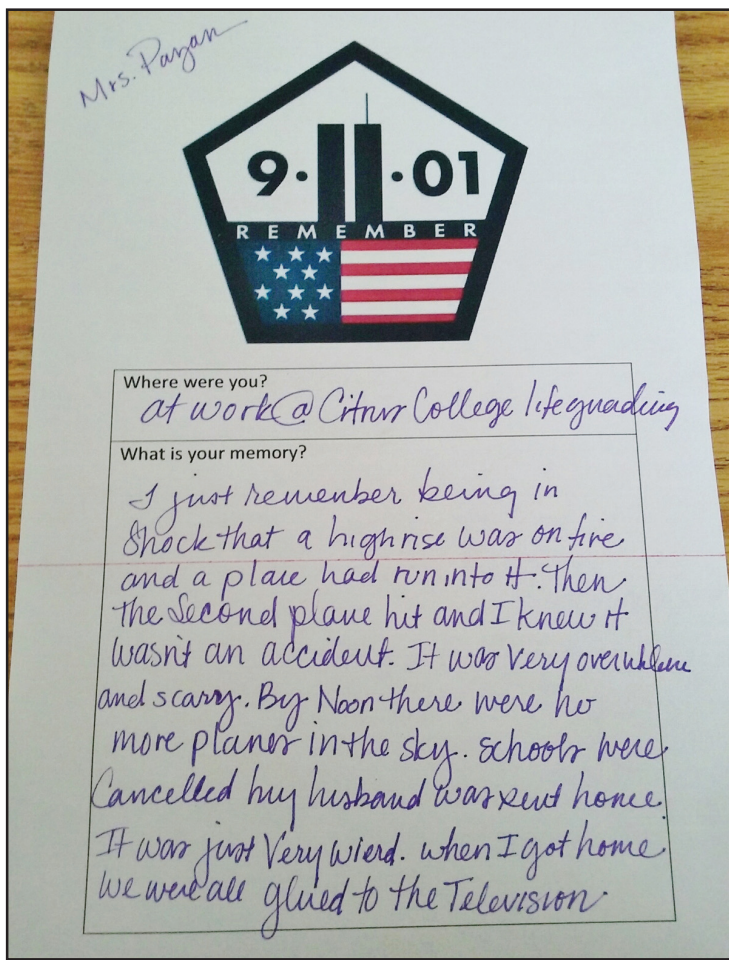 Mrs. Payan
9·11·01
REMEMBER
Where were you?
at work @ Citrus College lifeguading
What is your memory?
I just remember being in
Shock that a highrise was on fire
and a plane had run into it. Then
the Second plane hit and I knew it
wasn't an accident. It was Very overwhleme
and scary. By Noon there were no
more planes in the sky. Schools were
Cancelled my husband was sent home.
It was just Very wierd. when I got home
we were all glued to the Television